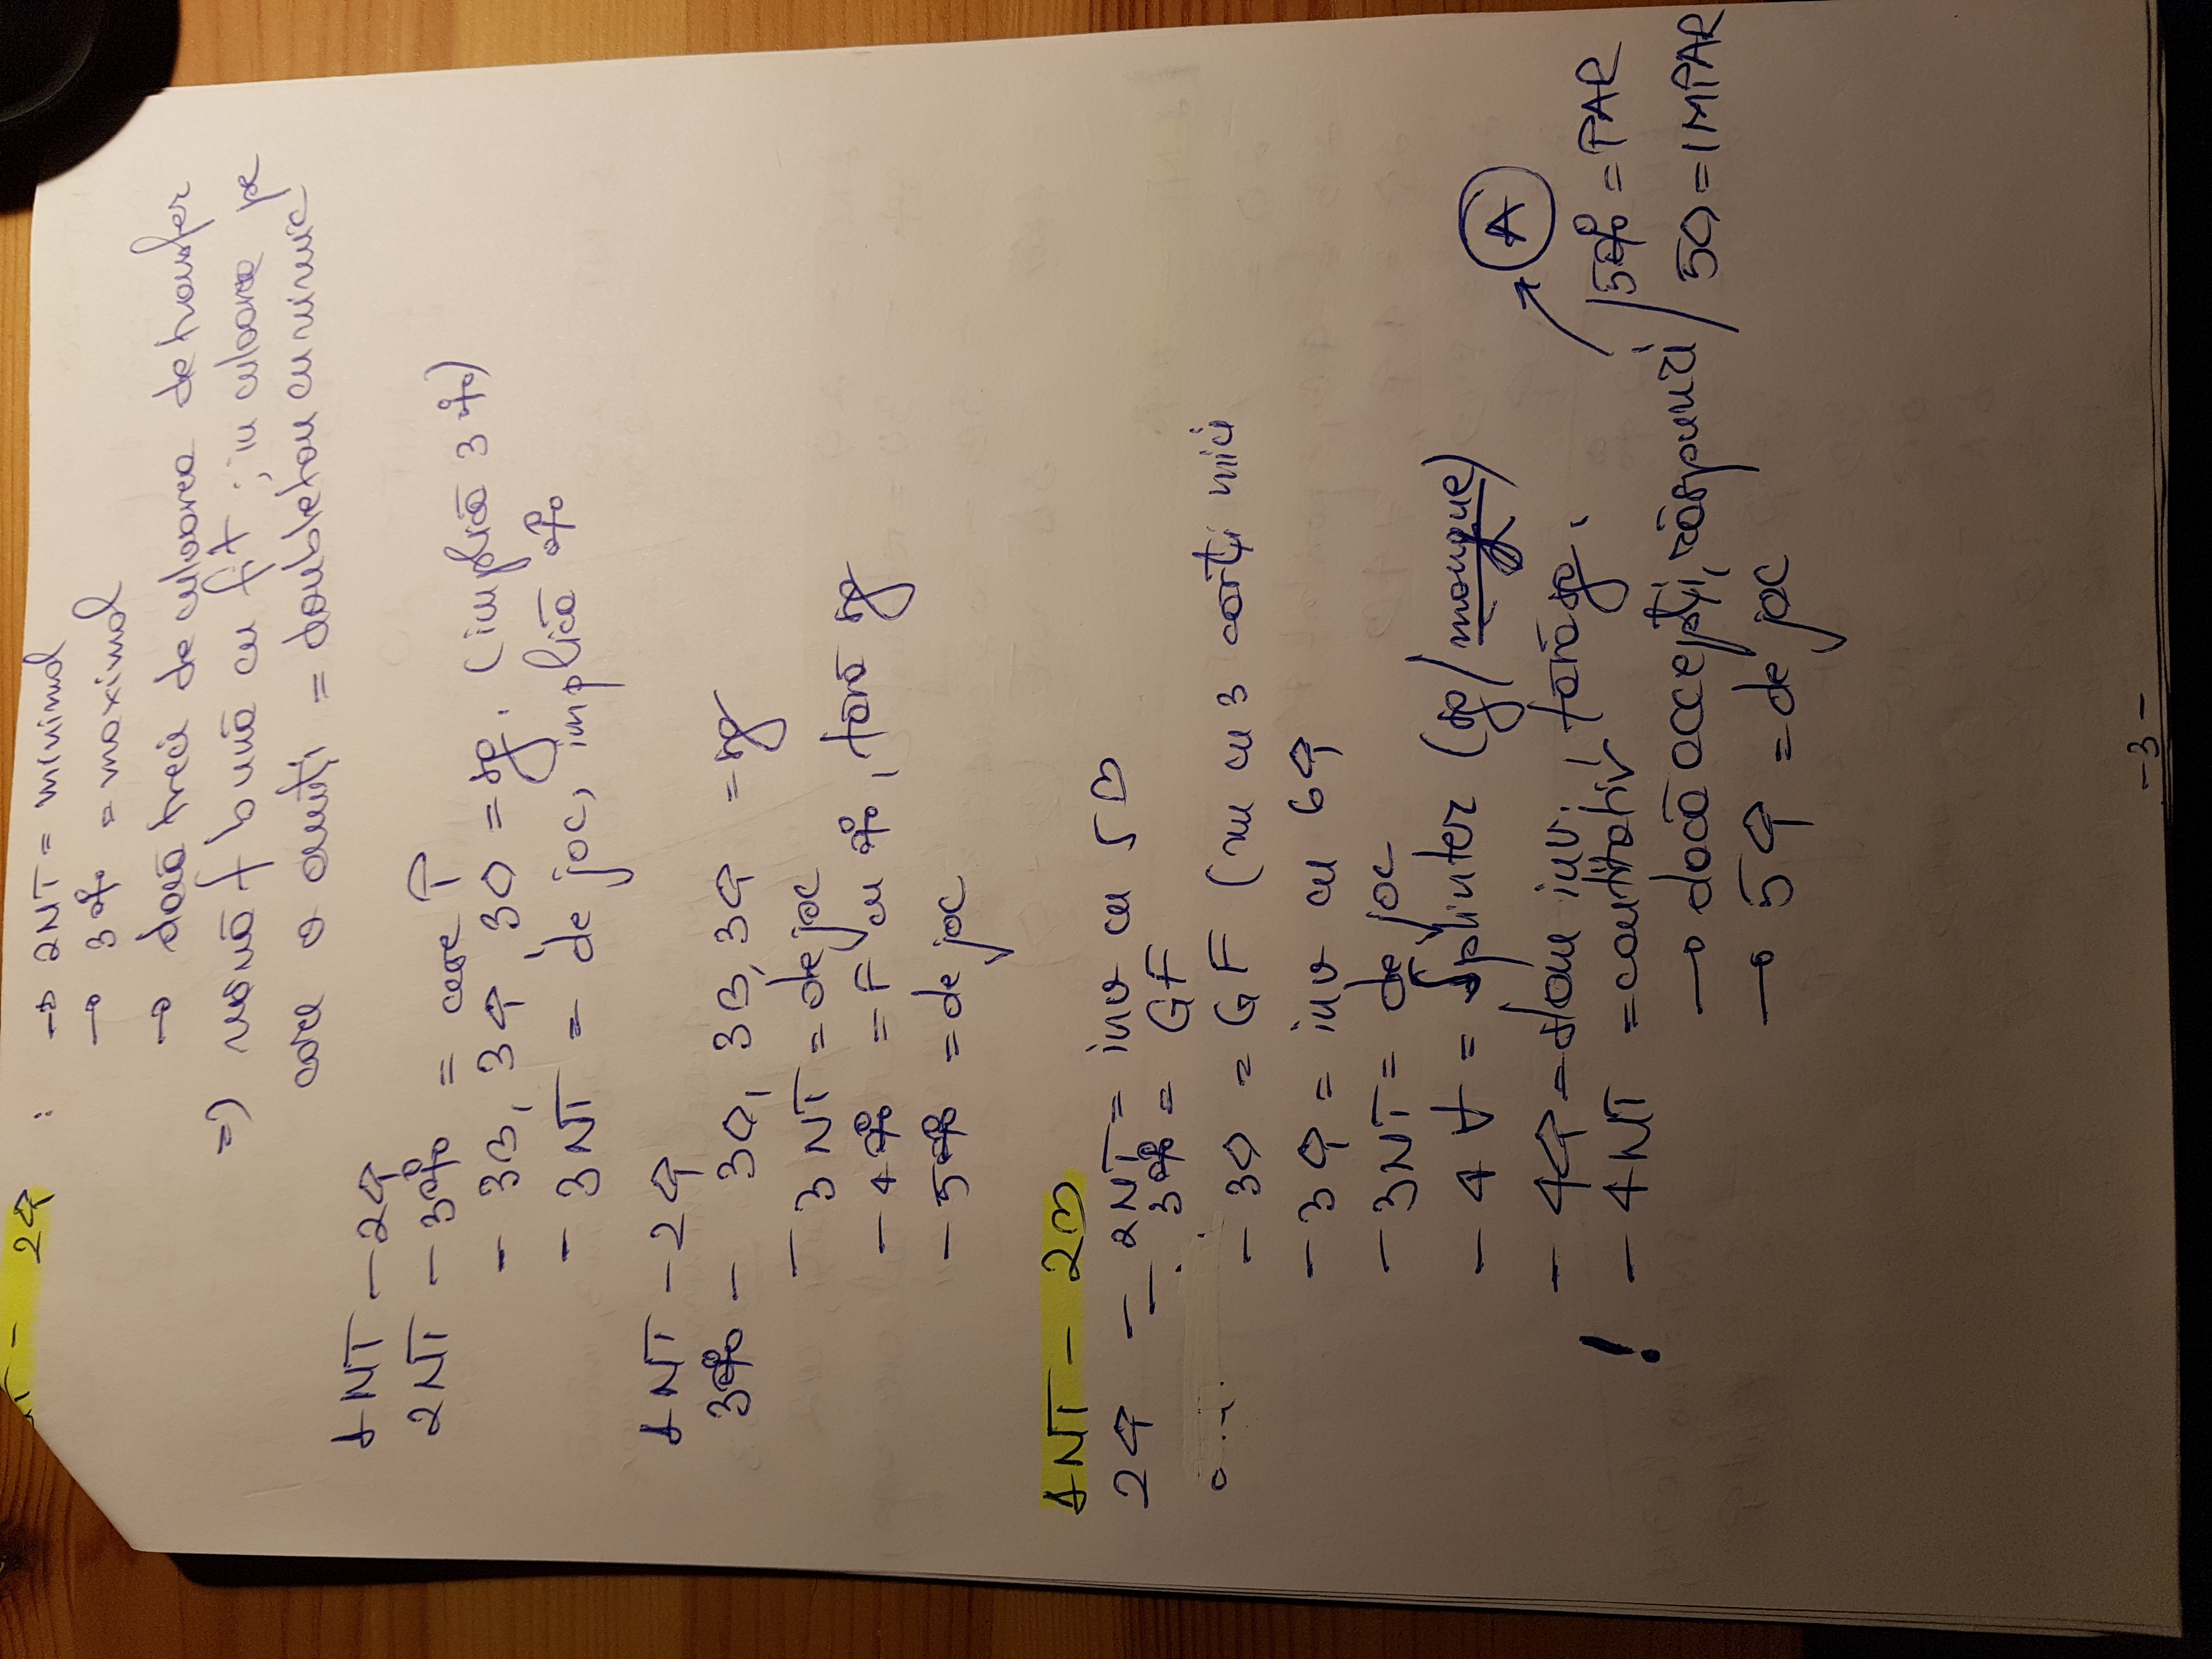 NT - 2♠ : → 2NT = minimal
→ 3♣ = maximal
→ dacă treci de culoarea de transfer
=> mână f bună cu fit ; in culoarea pe
care o anunți = doubleton cu nimic
1NT - 2♠
2NT - 3♣ = cere P
- 3♥, 3♠, 3♦ = sg. (implică 3♣)
- 3NT = de joc, implică ♣
1NT - 2♠
3♣ - 3♦, 3♥, 3♠ = sg
- 3NT = de joc
- 4♣ = F cu ♣, fără sg
- 5♣ = de joc
1NT - 2♥
2♠ - 2NT = inv cu 5♥
- 3♣ = GF
- 3♦ = GF (nu cu 3 cărți mici
- 3♠ = inv cu 6♠
- 3NT = de joc
- 4 = Splinter (sg/manque)
- 4♠ = slam inv., fără sg.
! - 4NT = cantitativ
→ dacă accepți, răspunzi / → A 5♣ = PAR
5♦ = IMPAR
→ 5♠ = de joc
-3-